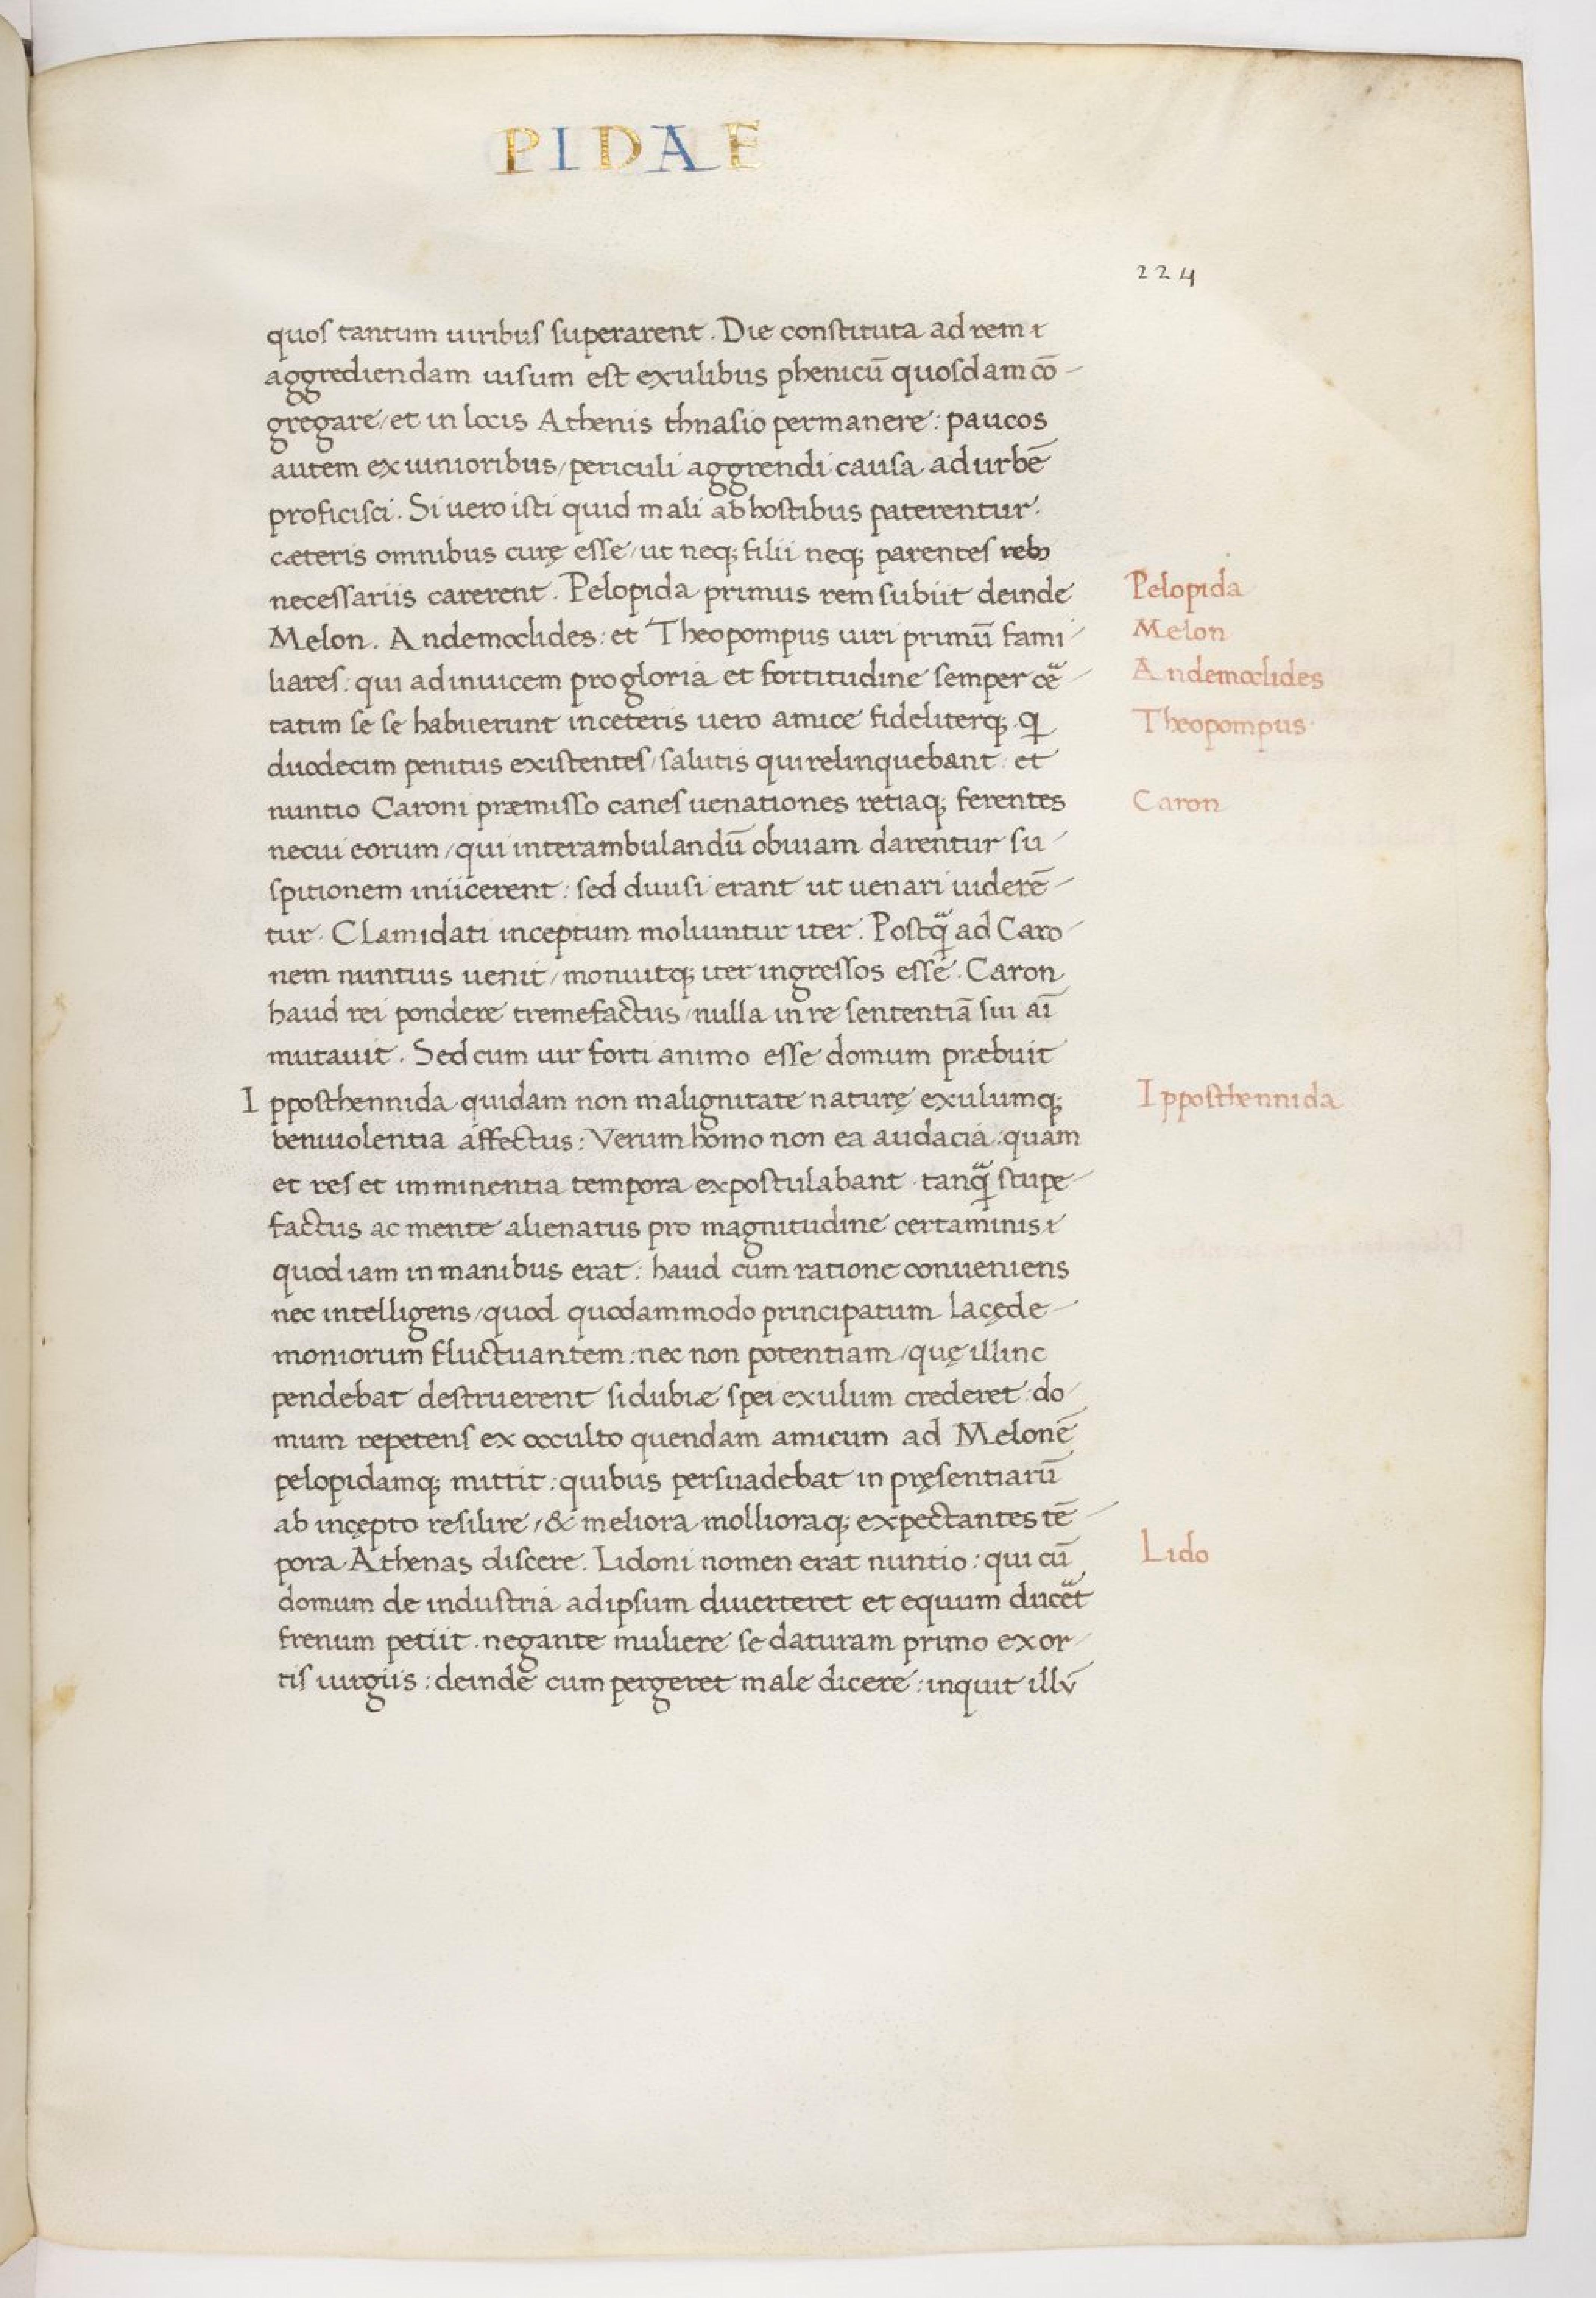 PIDAE
224
quos tantum uiribus superarent. Die constituta ad rem
aggrediendam uisum est exulibus phenicū quosdam cō-
gregare/et in locis Athenis thnasio permanere: paucos
autem ex iunioribus/periculi aggrendi causa ad urbē
proficisci. Si uero isti quid mali ab hostibus paterentur.
cæteris omnibus curę esse/ut neq; filii neq; parentes reb
necessariis carerent. Pelopida primus rem subiit deinde
Pelopida
Melon. Andemoclides: et Theopompus uiri primū fami-
Melon
liares: qui adinuicem pro gloria et fortitudine semper
Andemoclides
tatim se se habuerunt in ceteris uero amice fideliterq;
Theopompus
duodecim penitus existentes/salutis qui relinquebant: et
nuntio Caroni præmisso canes uenationes retiaq; ferentes
Caron
necui eorum/qui inter ambulandū obuiam darentur su-
spitionem iniicerent: sed diuisi erant ut uenari uiderē-
tur. Clamidati inceptum moliuntur iter. Postq̃ ad Caro-
nem nuntius uenit/monuitq; iter ingressos esse. Caron
haud rei pondere tremefactus/nulla in re sententiā sui aī
mutauit. Sed cum uir forti animo esse domum præbuit
Ipposthennida quidam non malignitate naturę exulumq;
Ipposthennida
beniuolentia affectus: Verum homo non ea audacia: quam
et res et imminentia tempora expostulabant. tanq̃ stupe-
factus ac mente alienatus pro magnitudine certaminis
quod iam in manibus erat: haud cum ratione conueniens
nec intelligens/quod quodammodo principatum lacęde-
moniorum fluctuantem: nec non potentiam/quę illinc
pendebat destruerent si dubiæ spei exulum crederet: do-
mum repetens ex occulto quendam amicum ad Melonē
pelopidamq; mittit: quibus persuadebat in pręsentiarū
ab incępto resilire/& meliora mollioraq; expectantes tē-
pora Athenas discere. Lidoni nomen erat nuntio: qui cū
Lido
domum de industria ad ipsum diuerteret et equum
frenum petiit. negante muliere se daturam primo exor-
tis iurgiis: deinde cum pergeret male dicere: inquit illū